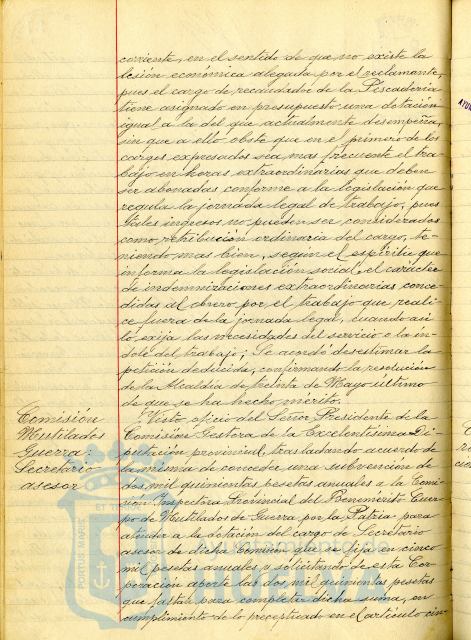 corriente, en el sentido de que no existe la
lesión económica alegada por el reclamante,
pues el cargo de recaudador de la Pescadería
tiene asignado en presupuesto una dotación
igual a la del que actualmente desempeña,
sin que a ello obste que en el primero de los
cargos expresados sea mas frecuente el tra-
bajo en horas extraordinarias que deben
ser abonadas conforme a la legislación que
regula la jornada legal de trabajo, pues
tales ingresos no pueden ser considerados
como retribución ordinaria del cargo, te-
niendo mas bien, según el espíritu que
informa la legislación social, el carácter
de indemnizaciones extraordinarias conce-
didas al obrero por el trabajo que reali-
ce fuera de la jornada legal, cuando asi
lo exija las necesidades del servicio o la ín-
dole del trabajo; Se acordo desestimar la
petición deducida, confirmando la resolución
de la Alcaldía de treinta de Mayo último
de que se ha hecho mérito.
Comisión
Mutilados
Guerra:
Secretario
asesor
Visto oficio del Señor Presidente de la
Comisión Gestora de la Excelentísima Di-
putación provincial, trasladando acuerdo de
la misma de concede una subvención de
dos mil quinientas pesetas anuales a la Comi-
sión Inspectora Provincial del Benemérito Cuer-
po de Mutilados de Guerra por la Patria para
atender a la dotación del cargo de Secretario
asesor de dicha Comisión que se fija en cinco
mil pesetas anuales y solicitando de esta Cor-
poración aporte las dos mil quinientas pesetas
que faltan para completar dicha suma, en
cumplimiento de lo preceptuado en el artículo cin-
PORTUS MARIS
Ayuntamiento de